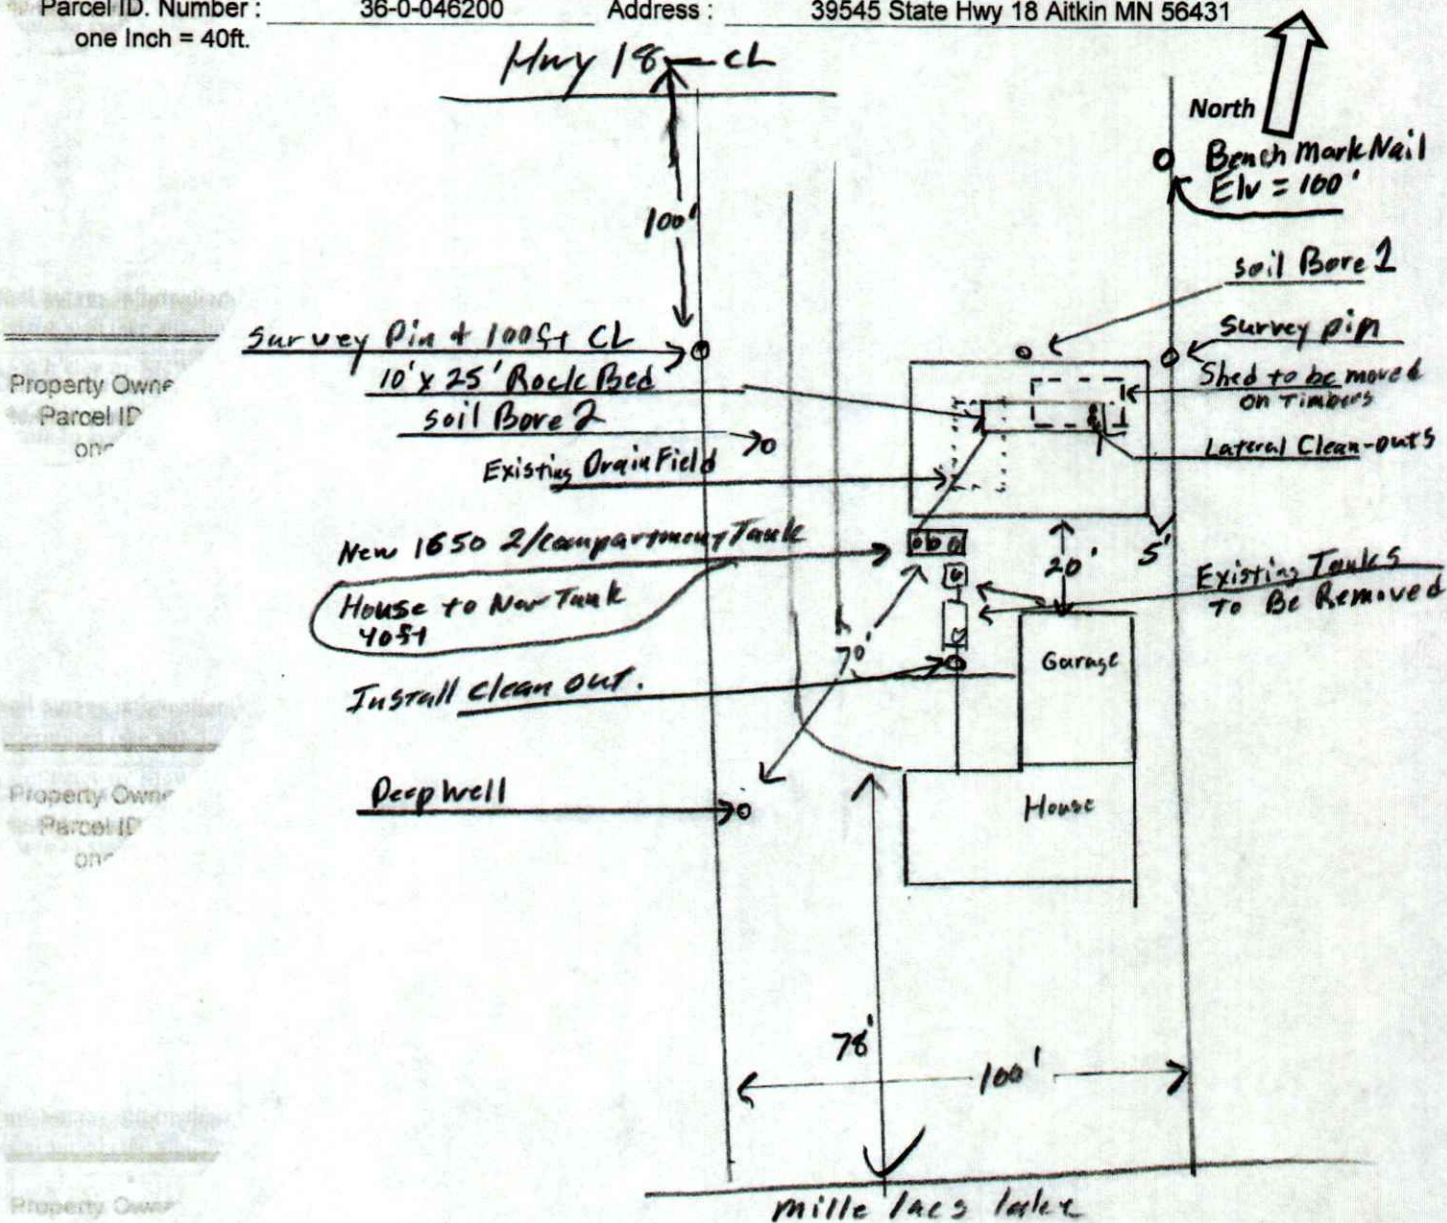 Parcel ID. Number : 36-0-046200 Address : 39545 State Hwy 18 Aitkin MN 56431
one Inch = 40ft.
Hwy 18 CL
North
Bench Mark Nail
Elv = 100'
100'
soil Bore 1
Survey Pin + 100ft CL
survey pin
10' x 25' Rock Bed
Shed to be moved
on Timbers
soil Bore 2
Lateral Clean-outs
Existing Drain Field
Property Owne
Parcel ID
one
New 1650 2/compartment Tank
20'
5'
Existing Tanks
To Be Removed
House to New Tank
40ft
70'
Garage
Install clean out.
Deep Well
House
Property Owne
Parcel ID
one
78'
100'
Mille Lacs lake
Property Owne